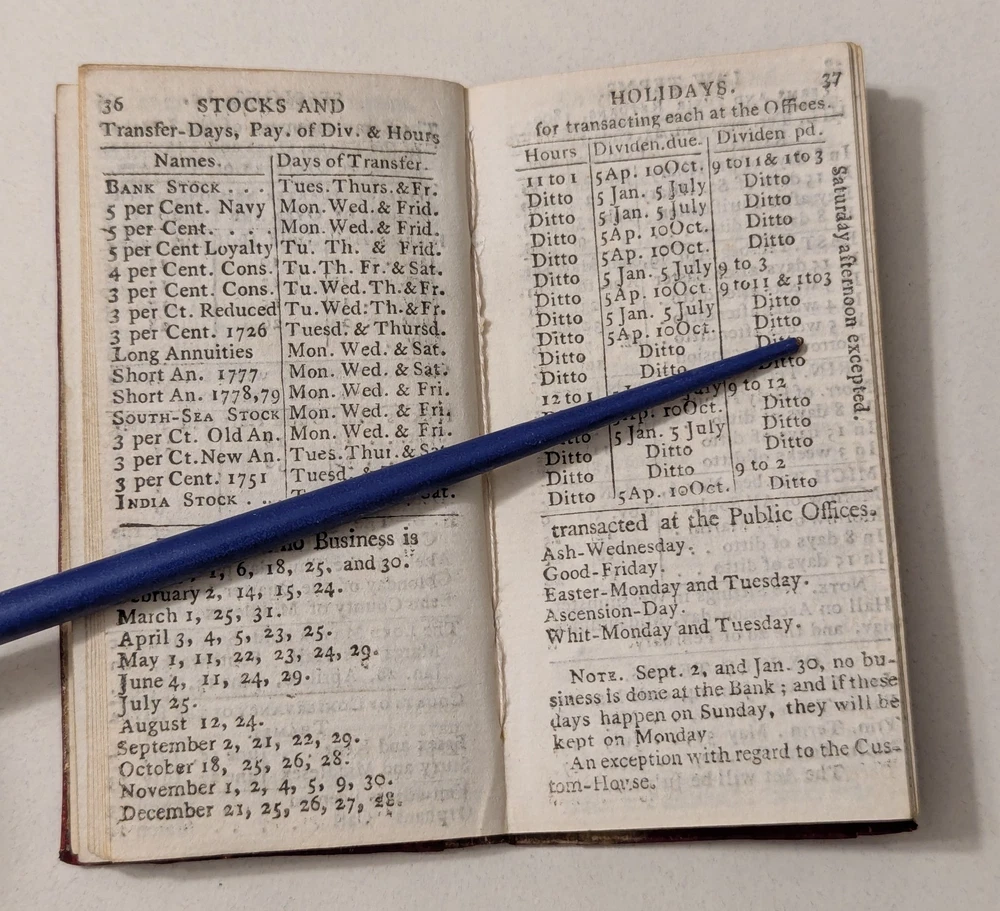 36 STOCKS AND
Transfer-Days, Pay. of Div. & Hours
Names. Days of Transfer.
BANK STOCK . . . Tues. Thurs. & Fr.
5 per Cent. Navy Mon. Wed. & Frid.
5 per Cent. . . . Mon. Wed. & Frid.
5 per Cent Loyalty Tu. Th. & Frid.
4 per Cent. Cons. Tu. Th. Fr. & Sat.
3 per Cent. Cons. Tu. Wed. Th. & Fr.
3 per Ct. Reduced Tu. Wed. Th. & Fr.
3 per Cent. 1726 Tuesd. & Thursd.
Long Annuities Mon. Wed. & Sat.
Short An. 1777 Mon. Wed. & Sat.
Short An. 1778,79 Mon. Wed. & Fri.
SOUTH-SEA STOCK Mon. Wed. & Fri.
3 per Ct. Old An. Mon. Wed. & Fri.
3 per Ct. New An. Tues. Thur. & Sat.
3 per Cent. 1751 Tuesd.
INDIA STOCK . . Sat.
no Business is
1, 6, 18, 25, and 30.
February 2, 14, 15, 24.
March 1, 25, 31.
April 3, 4, 5, 23, 25.
May 1, 11, 22, 23, 24, 29.
June 4, 11, 24, 29.
July 25.
August 12, 24.
September 2, 21, 22, 29.
October 18, 25, 26, 28.
November 1, 2, 4, 5, 9, 30.
December 21, 25, 26, 27, 28.
HOLIDAYS. 37
for transacting each at the Offices.
Hours Dividen. due. Dividen pd.
11 to 1 5 Ap. 10 Oct. 9 to 11 & 1 to 3
Ditto 5 Jan. 5 July Ditto
Ditto 5 Jan. 5 July Ditto
Ditto 5 Ap. 10 Oct. Ditto
Ditto 5 Ap. 10 Oct. Ditto
Ditto 5 Jan. 5 July 9 to 3
Ditto 5 Ap. 10 Oct. 9 to 11 & 1 to 3
Ditto 5 Jan. 5 July Ditto
Ditto 5 Ap. 10 Oct. Ditto
Ditto Ditto Ditto
Ditto Ditto Ditto
12 to 1 July 9 to 12
Ap. 10 Oct. Ditto
Ditto 5 Jan. 5 July Ditto
Ditto Ditto Ditto
Ditto Ditto 9 to 2
Ditto 5 Ap. 10 Oct. Ditto
Saturday afternoon excepted.
transacted at the Public Offices.
Ash-Wednesday.
Good-Friday.
Easter-Monday and Tuesday.
Ascension-Day.
Whit-Monday and Tuesday.
NOTE. Sept. 2, and Jan. 30, no bu-
siness is done at the Bank ; and if these
days happen on Sunday, they will be
kept on Monday.
An exception with regard to the Cus-
tom-House.